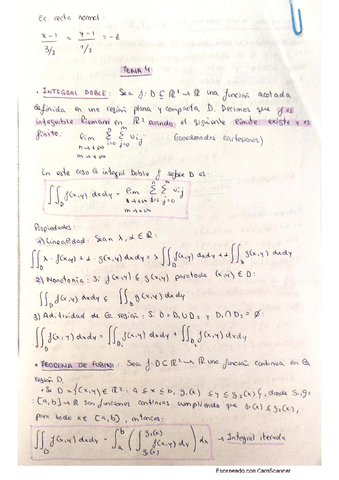 Ec. recta normal:
x-1/3/2 = y-1/1/2 = -z
TEMA 4
• INTEGRAL DOBLE: Sea f: D ⊆ ℝ² → ℝ una función acotada
definida en una región plana y compacta D. Decimos que f es
integrable Riemann en ℝ² cuando el siguiente límite existe y es
finito: lim n→+∞ m→+∞ Σ i=0 n Σ j=0 m Vij (coordenadas cartesianas)
En este caso la integral Doble f sobre D es:
∬D f(x,y) dxdy = lim n→+∞ m→+∞ Σ Σ Vij
Propiedades:
1) Linealidad: Sean λ, α ∈ ℝ:
∬D λ·f(x,y) + α·g(x,y) dxdy = λ ∬D f(x,y) dxdy + α ∬D g(x,y) dxdy
2) Monotonía: Si f(x,y) ≤ g(x,y) para todo (x,y) ∈ D:
∬D f(x,y) dxdy ≤ ∬D g(x,y) dxdy
3) Aditividad de la región: Si D = D₁ ∪ D₂ y D₁ ∩ D₂ = ∅:
∬D f(x,y) dxdy = ∬D₁ f(x,y) dxdy + ∬D₂ f(x,y) dxdy
• TEOREMA DE FUBINI: Sea f: D ⊂ ℝ² → ℝ una función continua en la
región D.
• Si D = {(x,y) ∈ ℝ²: a ≤ x ≤ b, g₁(x) ≤ y ≤ g₂(x)}, donde g₁, g₂
: [a,b] → ℝ son funciones continuas cumpliendo que g₁(x) ≤ g₂(x),
para todo x ∈ [a,b], entonces:
∬D f(x,y) dxdy = ∫a b ( ∫g₁(x) g₂(x) f(x,y) dy ) dx → Integral iterada
Escaneado con CamScanner